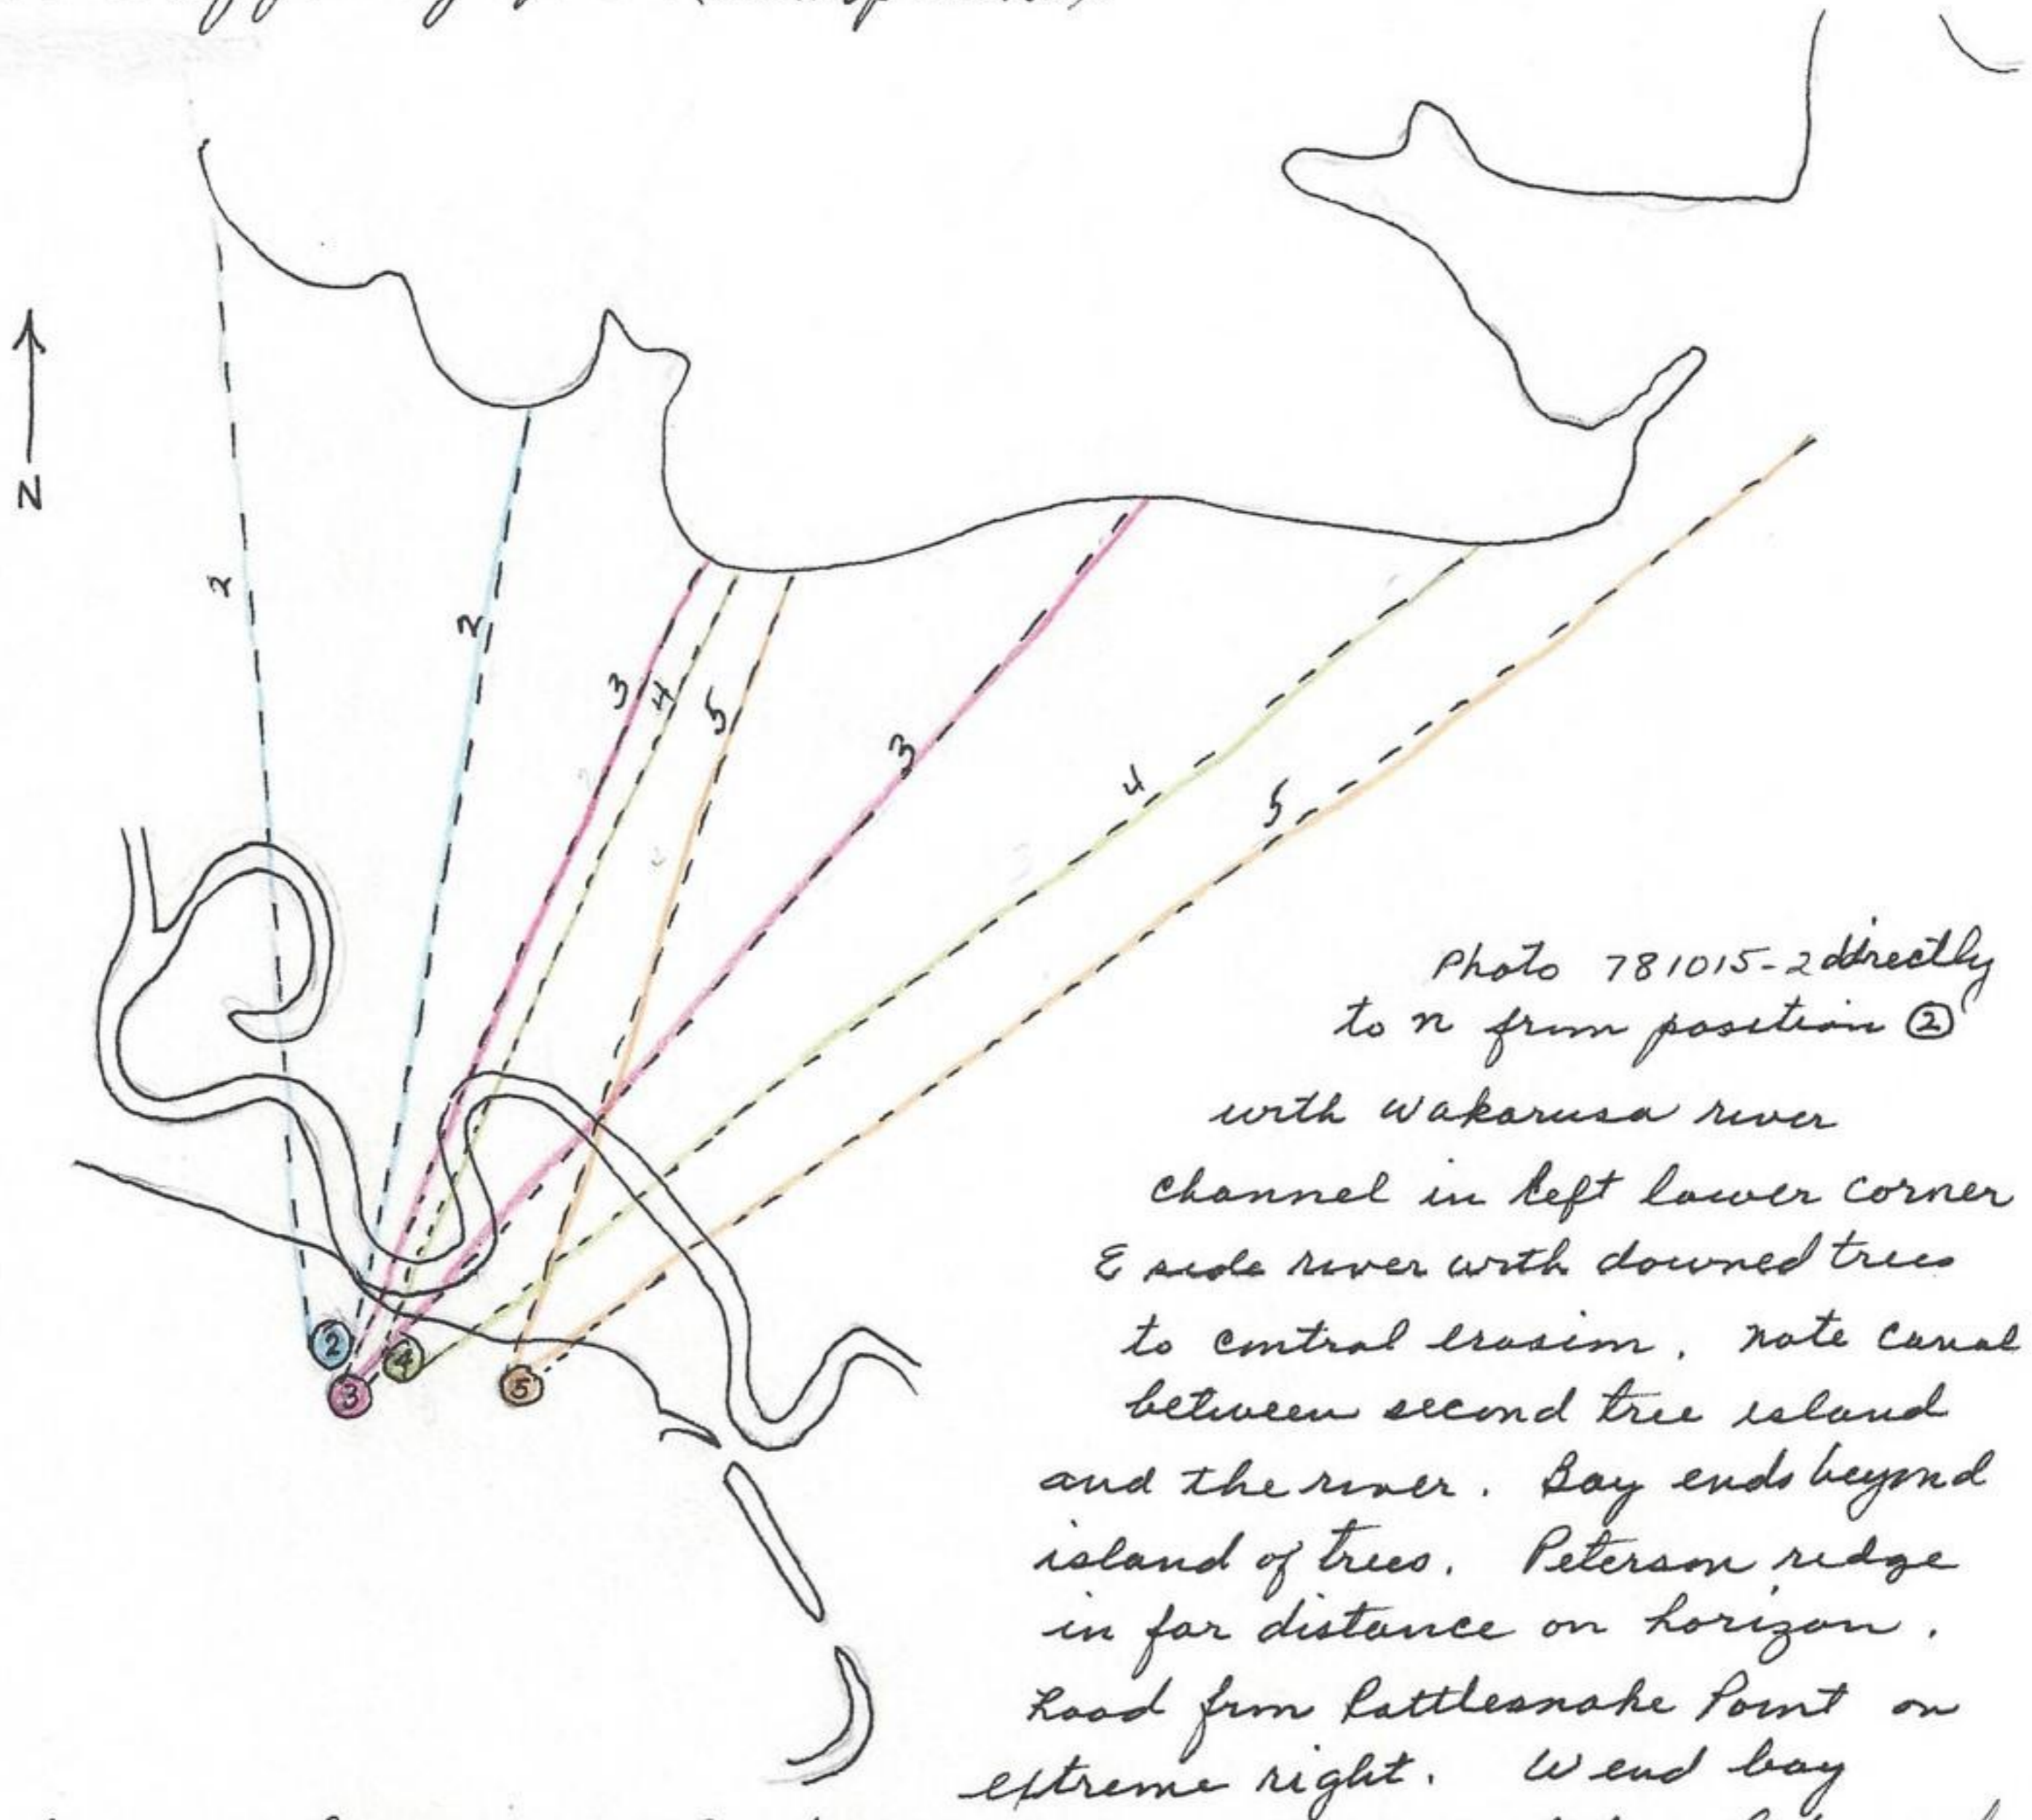 N
2
2
3
4
5
3
4
5
2
3
4
5
Photo 781015-2 directly
to N from position ②
with Wakarusa river
channel in left lower corner
E side river with downed trees
to control erosion. Note canal
between second tree island
and the river. Bay ends beyond
island of trees. Peterson ridge
in far distance on horizon.
Road from Rattlesnake Point on
extreme right. W end bay